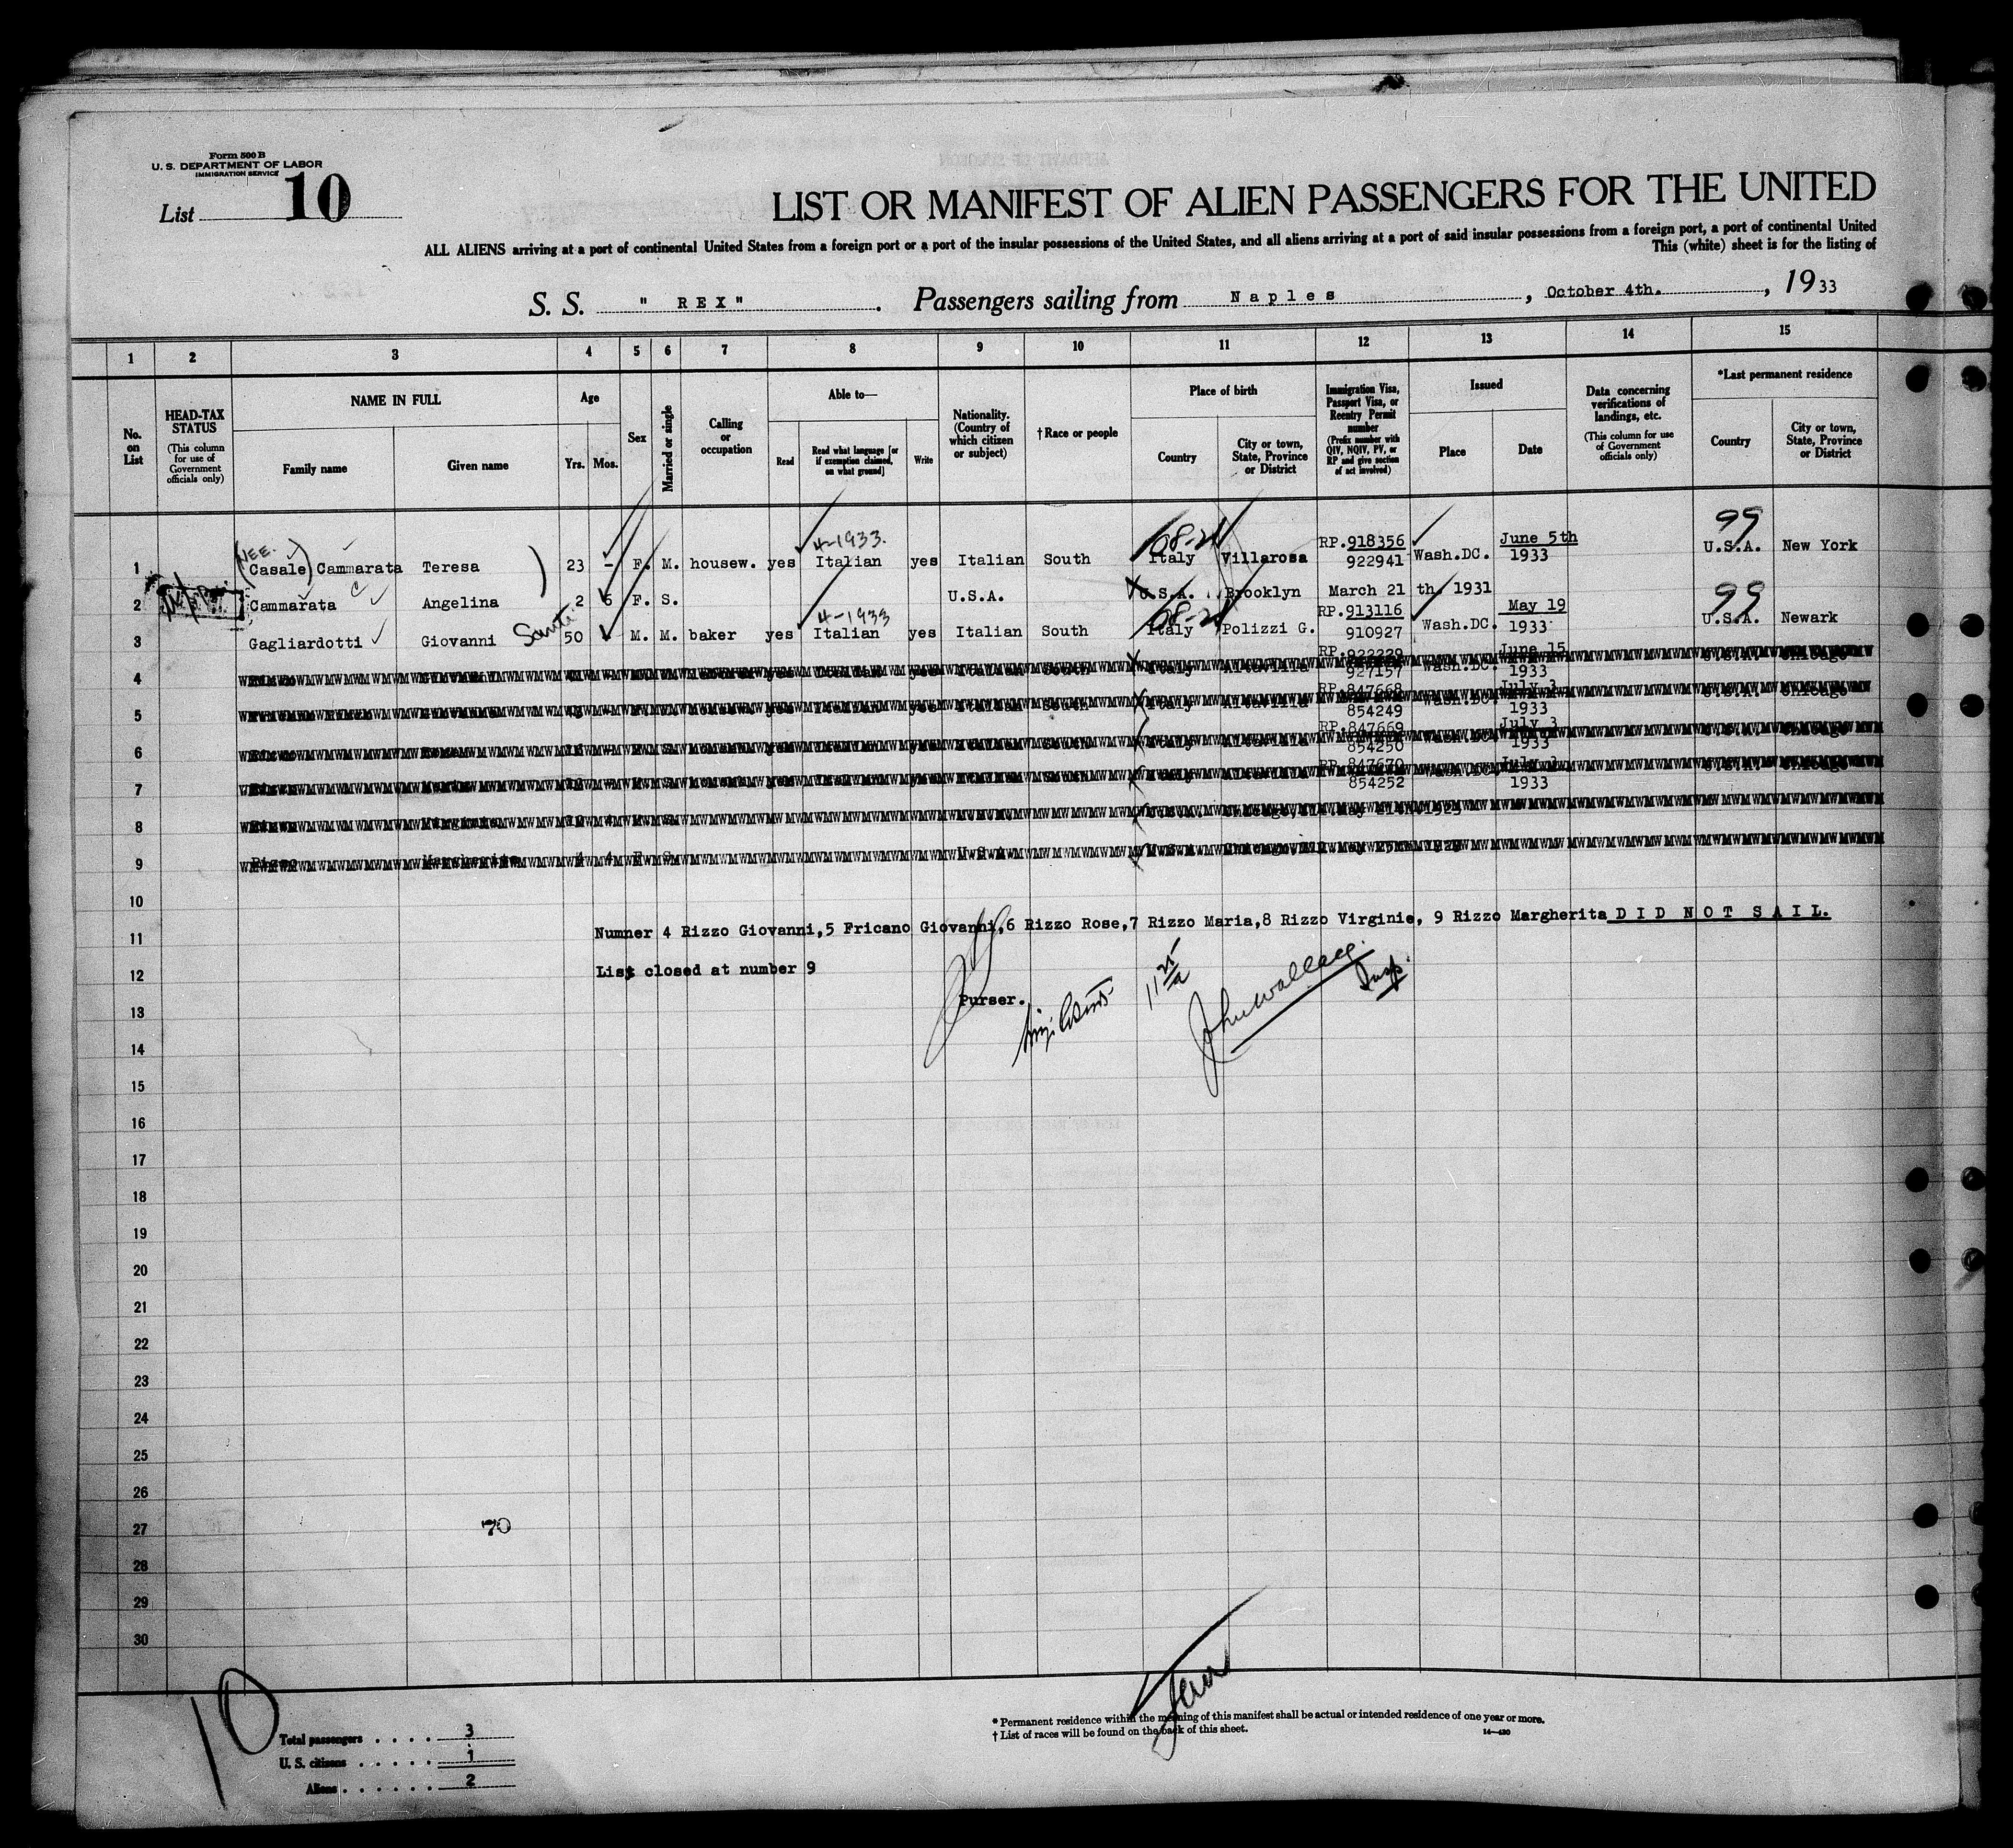 Form 500 B
U. S. DEPARTMENT OF LABOR
IMMIGRATION SERVICE
List 10
LIST OR MANIFEST OF ALIEN PASSENGERS FOR THE UNITED
ALL ALIENS arriving at a port of continental United States from a foreign port or a port of the insular possessions of the United States, and all aliens arriving at a port of said insular possessions from a foreign port, a port of continental United
This (white) sheet is for the listing of
S. S. " REX" . Passengers sailing from Naples , October 4th. , 1933
1 2 3 4 5 6 7 8 9 10 11 12 13 14 15
No. on List
HEAD-TAX STATUS (This column for use of Government officials only)
NAME IN FULL
Family name Given name
Age
Yrs. Mos.
Sex
Married or single
Calling or occupation
Able to—
Read
Read what language [or if exemption claimed, on what ground]
Write
Nationality. (Country of which citizen or subject)
† Race or people
Place of birth
Country
City or town, State, Province or District
Immigration Visa, Passport Visa, or Reentry Permit number (Prefix number with QIV, NQIV, PV, or RP and give section of act involved)
Issued
Place Date
Data concerning verifications of landings, etc. (This column for use of Government officials only)
*Last permanent residence
Country
City or town, State, Province or District
(NEE. 4-1933. 08-21 RP.918356 June 5th 99
1 Casale) Cammarata Teresa 23 - F. M. housew. yes Italian yes Italian South Italy Villarosa 922941 Wash.DC. 1933 U.S.A. New York
2 Cammarata C Angelina 2 6 F. S. U.S.A. U.S.A. Brooklyn March 21 th. 1931
Santi 4-1933 08-21 RP.913116 May 19 99
3 Gagliardotti Giovanni 50 M. M. baker yes Italian yes Italian South Italy Polizzi G. 910927 Wash.DC. 1933 U.S.A. Newark
RP.922229 June 15
4 Italian South Italy 927157 Wash.DC. 1933 Chicago
RP.847668 July 3
5 Italy 854249 Wash.DC. 1933 Chicago
RP.847669 July 3
6 854250 1933
RP.847670 July 3
7 854252 1933
8
9 Rizzo Margherita 4 F. S. U.S.A.
10
11 Numner 4 Rizzo Giovanni,5 Fricano Giovanni,6 Rizzo Rose,7 Rizzo Maria,8 Rizzo Virginie, 9 Rizzo Margherita D I D N O T S A I L.
12 List closed at number 9
13 Purser.
John Wallace Insp.
14
15
16
17
18
19
20
21
22
23
24
25
26
27 70
28
29
30
10
Total passengers . . . . . 3
U. S. citizens . . . . . 1
Aliens . . . . . . 2
* Permanent residence within the meaning of this manifest shall be actual or intended residence of one year or more.
† List of races will be found on the back of this sheet. 14—430